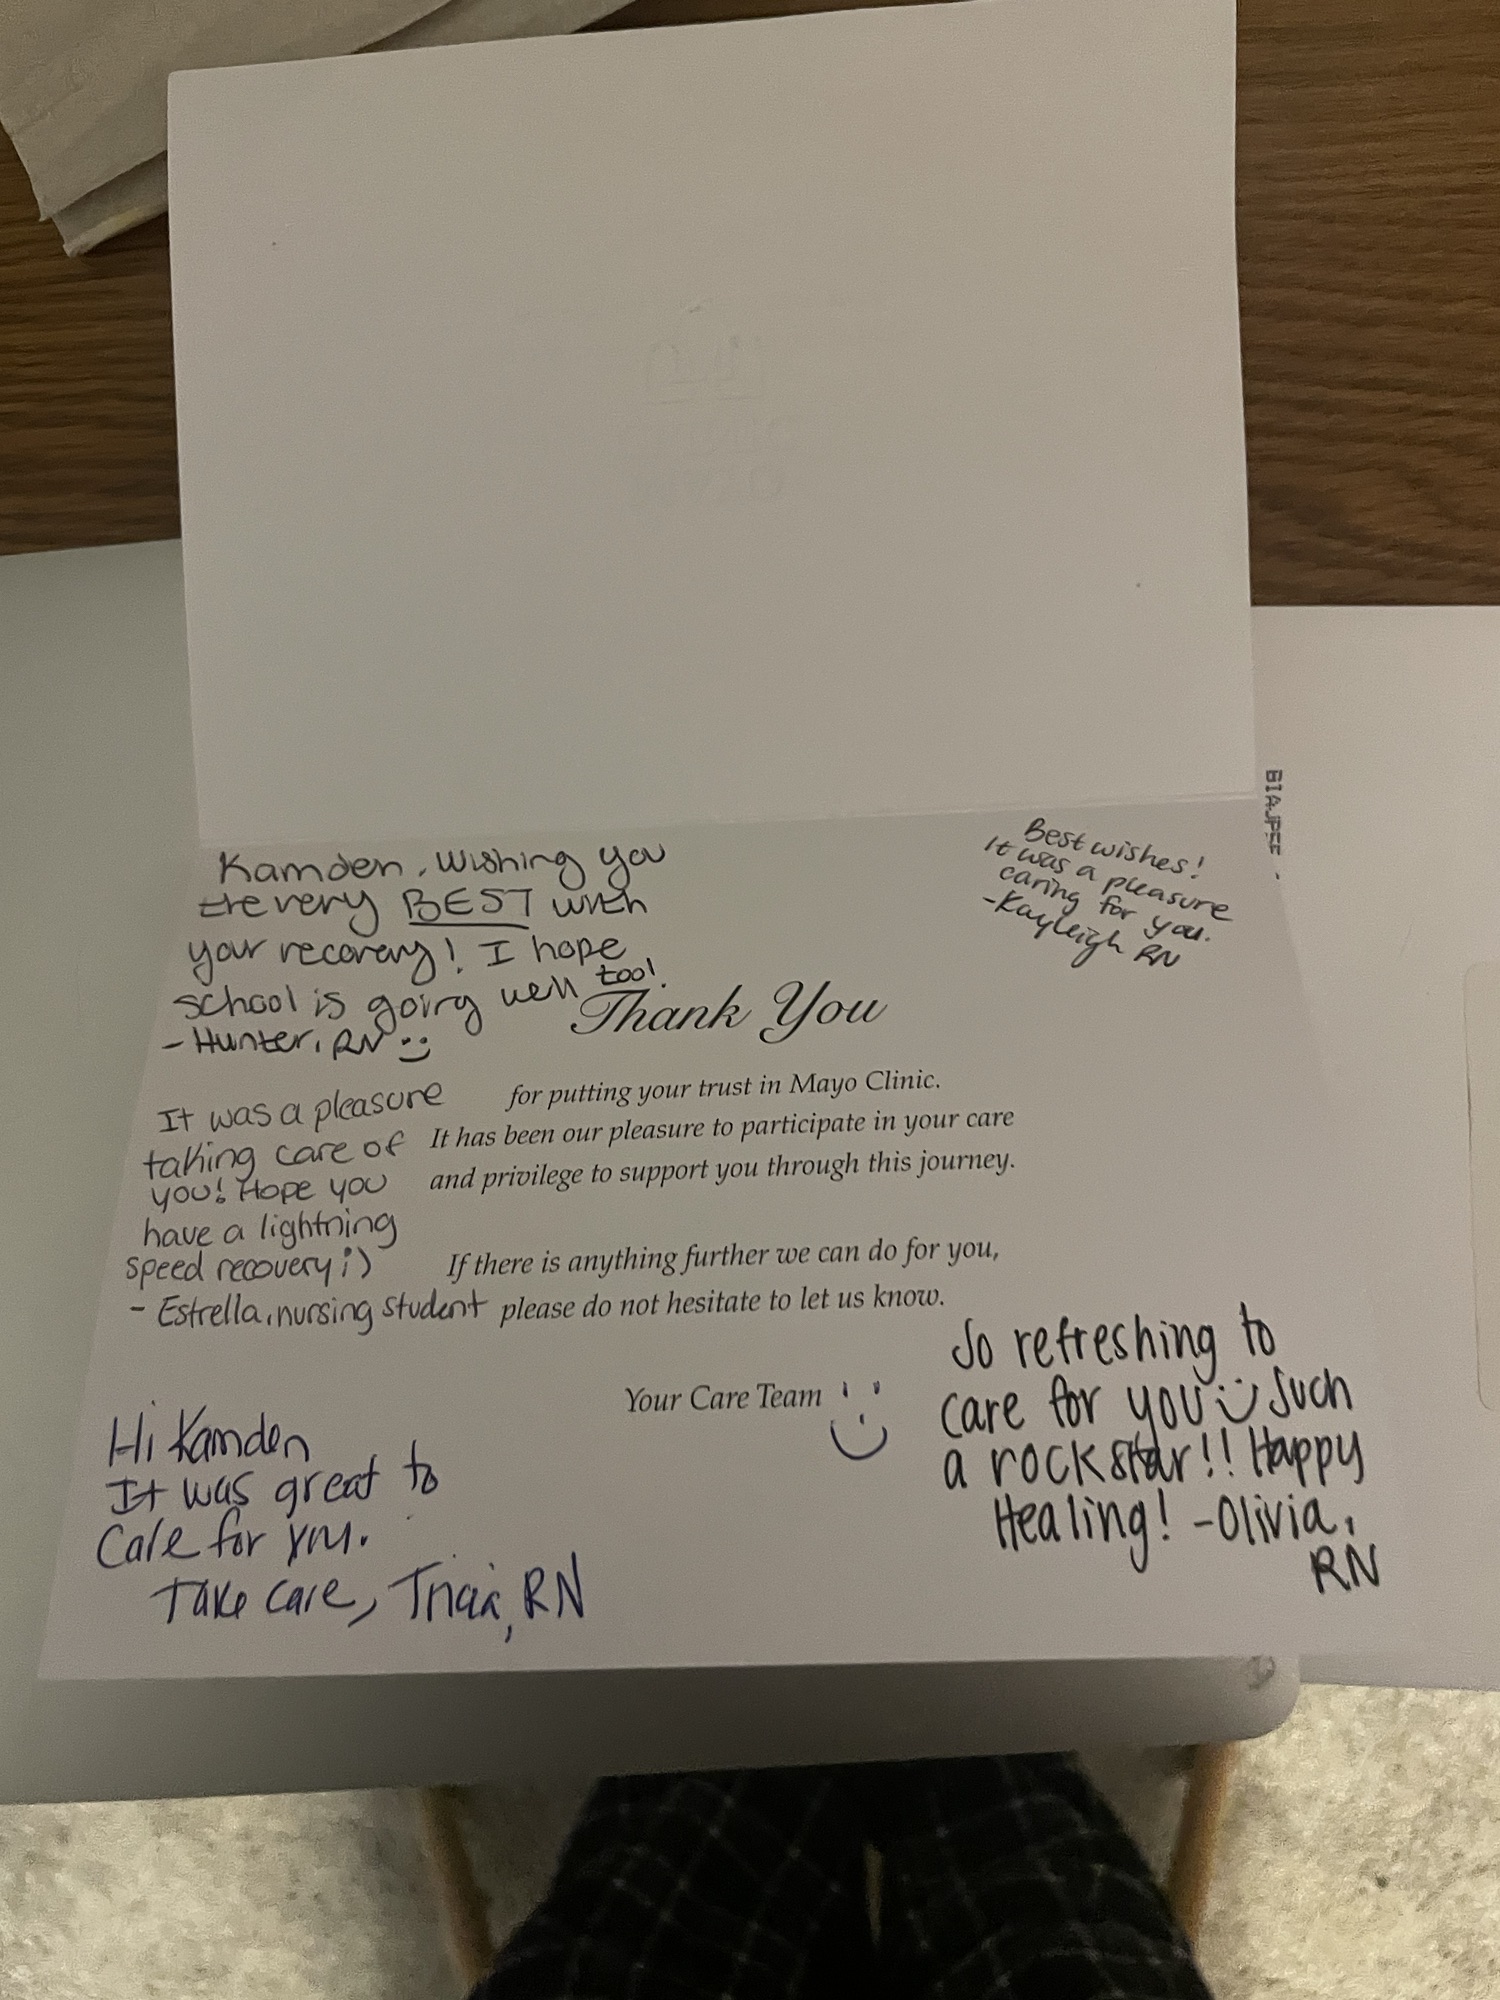 Kamden, Wishing you
the very BEST with
your recovery! I hope
school is going well too!
- Hunter, RN :)
Best wishes!
It was a pleasure
caring for you.
-Kayleigh RN
Thank You
for putting your trust in Mayo Clinic.
It has been our pleasure to participate in your care
and privilege to support you through this journey.
If there is anything further we can do for you,
please do not hesitate to let us know.
Your Care Team :)
It was a pleasure
taking care of
you! Hope you
have a lightning
speed recovery :)
- Estrella, nursing student
Hi Kamden
It was great to
Care for you.
Take care, Tricia, RN
So refreshing to
care for you :) Such
a rockstar!! Happy
Healing! -Olivia,
RN